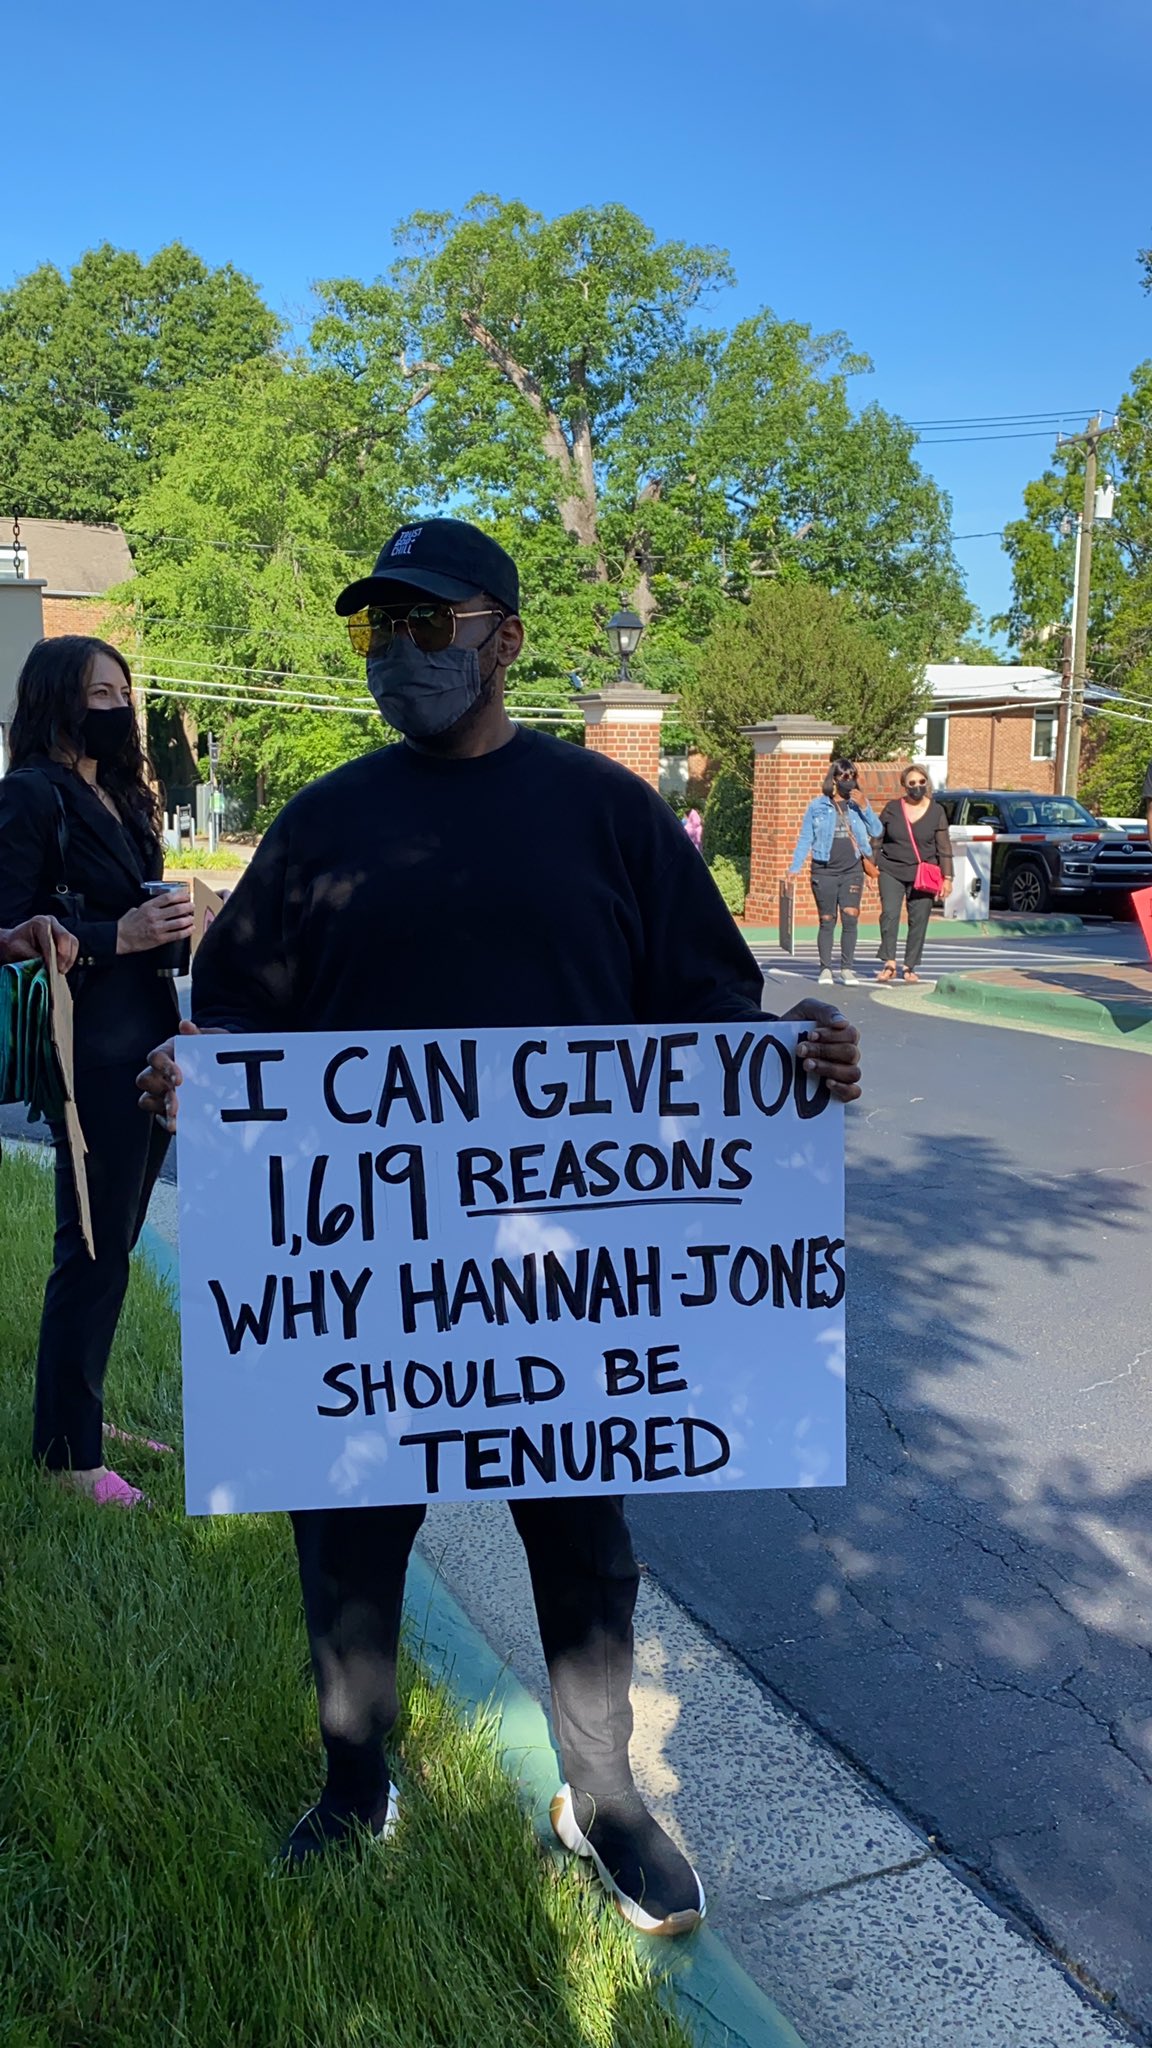 TRUST
GOD +
CHILL
I CAN GIVE YOU
1,619 REASONS
WHY HANNAH-JONES
SHOULD BE
TENURED